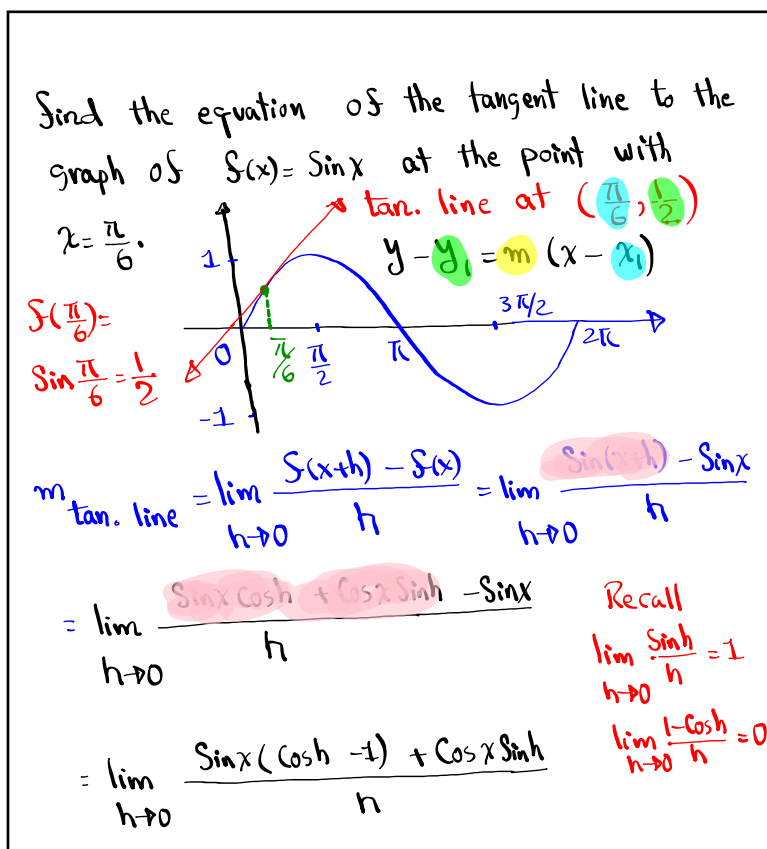 find the equation of the tangent line to the
graph of f(x) = Sin x at the point with
x = π/6.
tan. line at (π/6, 1/2)
y - y₁ = m (x - x₁)
f(π/6) =
Sin π/6 = 1/2
1
0
π/6
π/2
π
3π/2
2π
-1
m tan. line = lim h→0 (f(x+h) - f(x))/h = lim h→0 (Sin(x+h) - Sinx)/h
= lim h→0 (Sinx Cosh + Cosx Sinh - Sinx)/h
Recall
lim h→0 Sinh/h = 1
lim h→0 (1-Cosh)/h = 0
= lim h→0 (Sinx(Cosh -1) + Cosx Sinh)/h